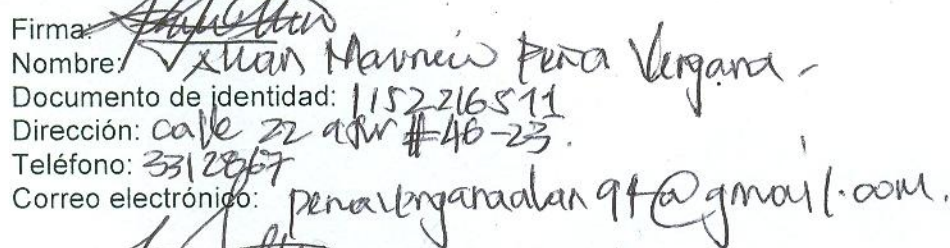 Firma:
Nombre: Allan Mauricio Peña Vergara -
Documento de identidad: 1152216511
Dirección: calle 22 a sur #46-23.
Teléfono: 3312867
Correo electrónico: penavergaraalan94@gmail.com.